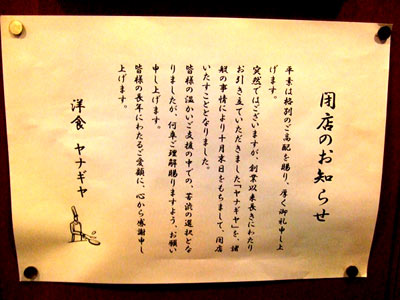 閉店のお知らせ
平素は格別のご高配を賜り、厚く御礼申し上
げます。
突然ではございますが、創業以来長きにわたり
お引き立ていただきました「ヤナギヤ」を、諸
般の事情により十月末日をもちまして、閉店
いたすこととなりました。
皆様の温かいご支援の中での、苦渋の選択とな
りましたが、何卒ご理解賜りますよう、お願い
申し上げます。
皆様の長年にわたるご愛顧に、心から感謝申し
上げます。
洋食 ヤナギヤ